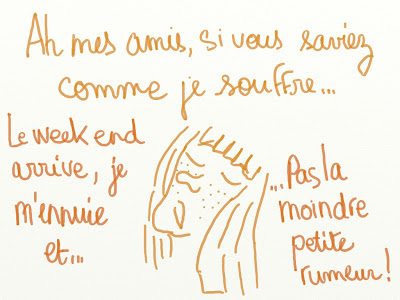 Ah mes amis, si vous saviez
comme je souffre...
Le week end
arrive, je
m'ennuie
et...
...Pas la
moindre
petite
rumeur!